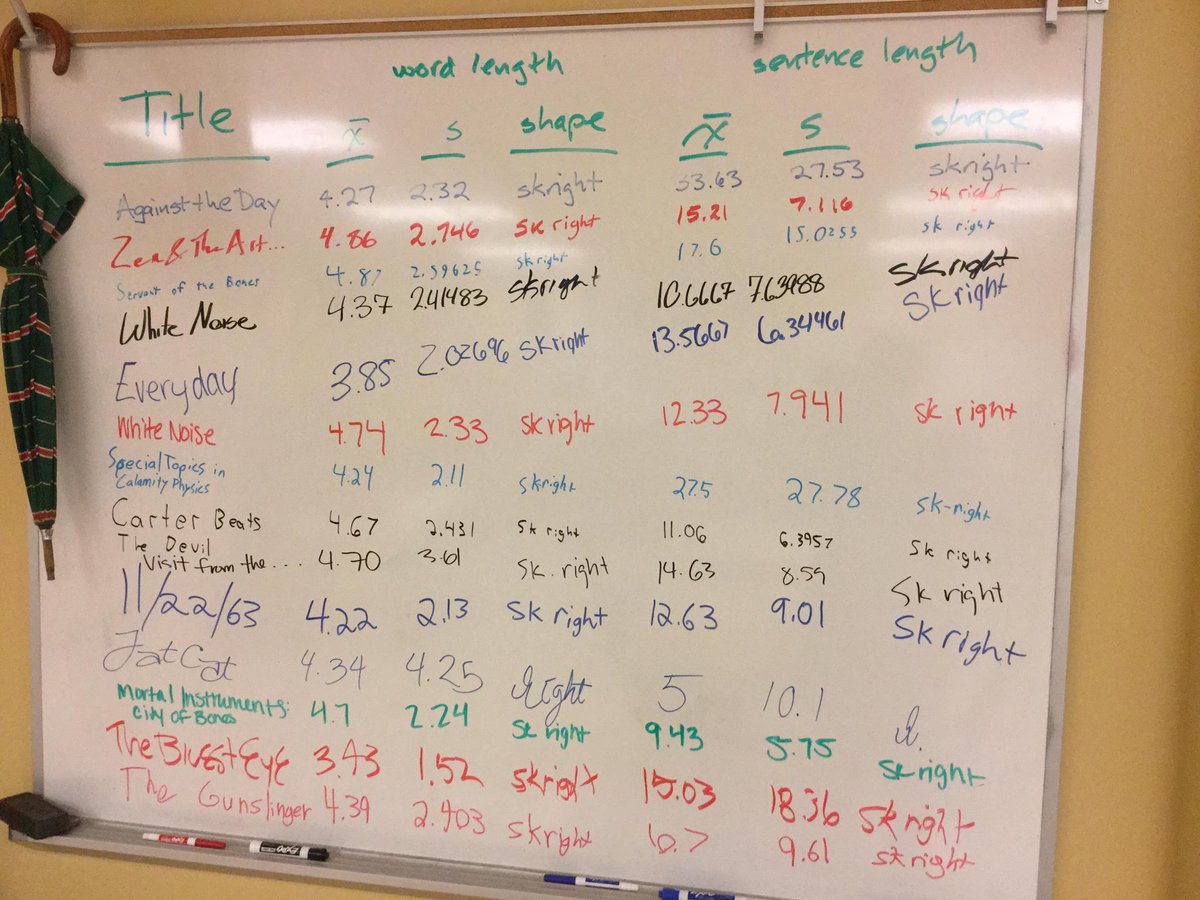 word length sentence length
Title x̄ s shape x̄ s shape
Against the Day 4.27 2.32 skright 33.63 27.53 skright
Zen & The Art... 4.86 2.746 sk right 15.21 7.116 sk right
Servant of the Bones 4.87 2.59625 skright 17.6 15.0255 sk right
White Noise 4.37 2.41483 skright 10.6667 7.63988 skright
Everyday 3.85 2.02696 skright 13.5667 6.34461 sk right
White Noise 4.74 2.33 sk right 12.33 7.941 sk right
Special Topics in
Calamity Physics 4.24 2.11 sk.right 27.5 27.78 sk-right
Carter Beats 4.67 2.431 sk right 11.06 6.3957 sk right
The Devil
Visit from the ... 4.70 3.61 sk. right 14.63 8.59 sk right
11/22/63 4.22 2.13 sk right 12.63 9.01 sk right
Fat Cat 4.34 4.25 right 5 10.1
Mortal Instruments:
City of Bones 4.7 2.24 sk right 9.43 5.75 sk right
The Bluest Eye 3.43 1.52 skright 15.03 18.36 skright
The Gunslinger 4.39 2.903 skright 9.61 skright
EXPO